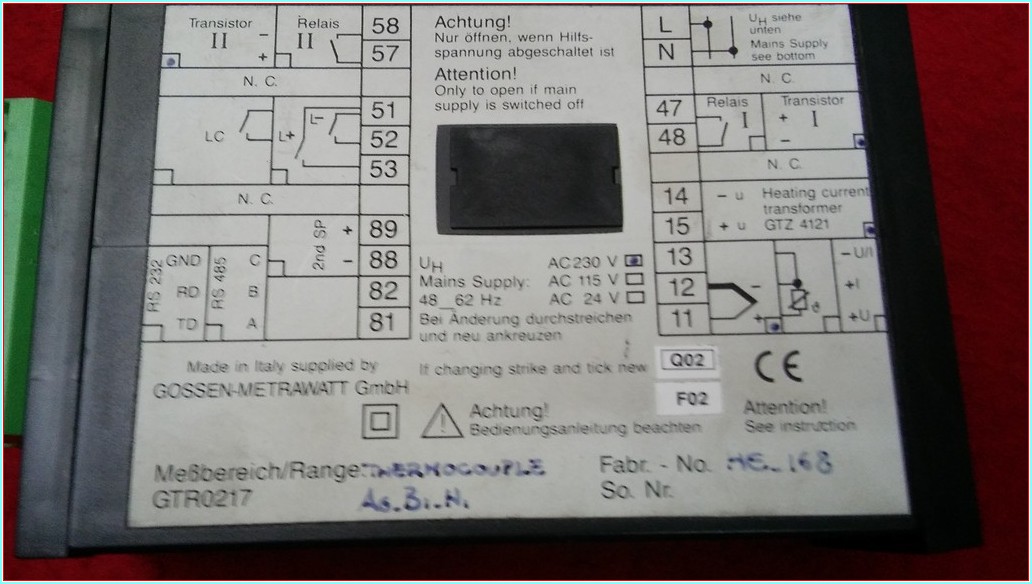 Transistor
II
−
+
Relais
II
58
57
N. C.
LC
L+
L-
51
52
53
N. C.
2nd SP
+
−
89
88
82
81
RS 232
GND
RD
TD
RS 485
C
B
A
Achtung!
Nur öffnen, wenn Hilfs-
spannung abgeschaltet ist
Attention!
Only to open if main
supply is switched off
UH AC 230 V
Mains Supply: AC 115 V
48_62 Hz AC 24 V
Bei Änderung durchstreichen
und neu ankreuzen
If changing strike and tick new
L
N
UH siehe
unten
Mains Supply
see bottom
N. C.
47
48
Relais
I
Transistor
+
−
I
N. C.
14
15
− u
+ u
Heating current
transformer
GTZ 4121
13
12
11
−
+
−U/I
+I
+U
Made in Italy supplied by
GOSSEN-METRAWATT GmbH
Q02
F02
CE
Achtung!
Bedienungsanleitung beachten
Attention!
See instruction
Meßbereich/Range: THERMOCOUPLE
GTR0217
As.Bi.H.
Fabr. - No. HE_168
So. Nr.